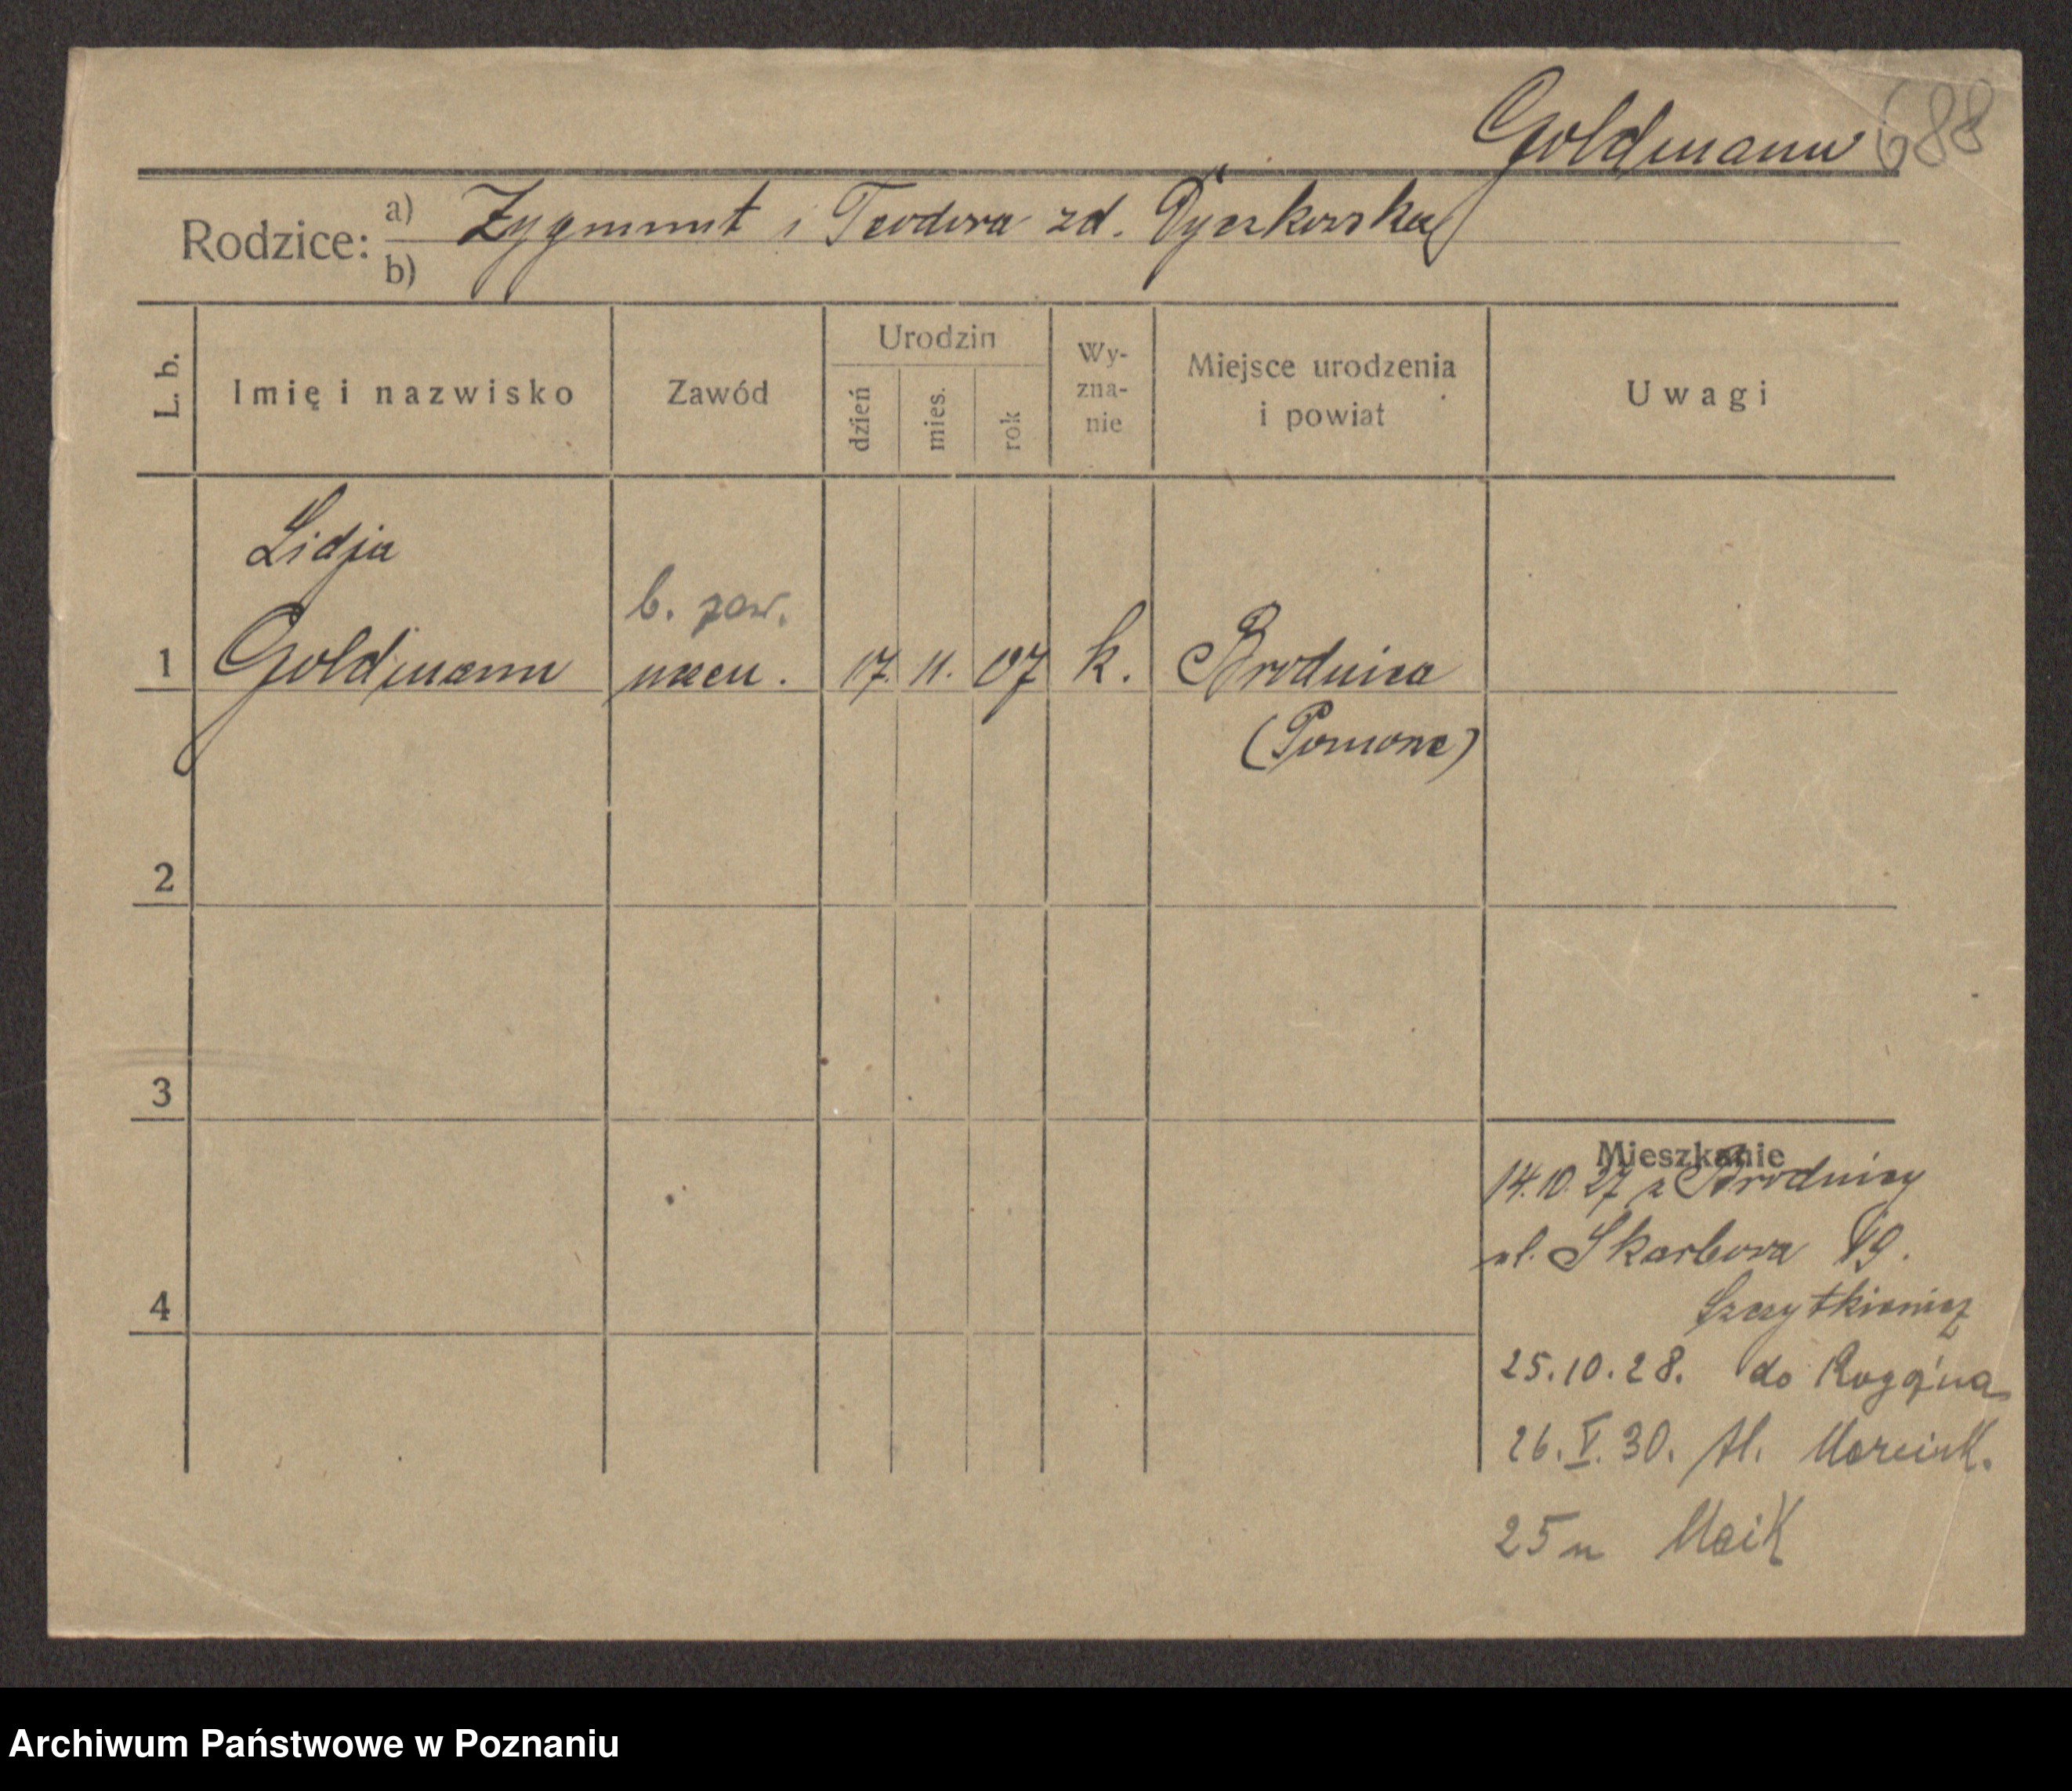 Goldmann 688
Rodzice: a) Zygmunt i Teodora zd. Dyczkowska
b)
L. b. Imię i nazwisko Zawód Urodzin dzień mies. rok Wyznanie Miejsce urodzenia i powiat Uwagi
Lidja
b. zaw.
1 Goldmann 17. 11. 07 k. Brodnica
(Pomorze)
2
3
Mieszkanie
14.10.27 z Brodnicy
ul. Skarbowa 19.
4
25.10.28. do Rogoźna
26.V.30. Al. Marcink.
25
Archiwum Państwowe w Poznaniu